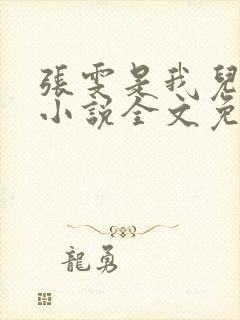 張雯是我兒
小說全文免
龍勇